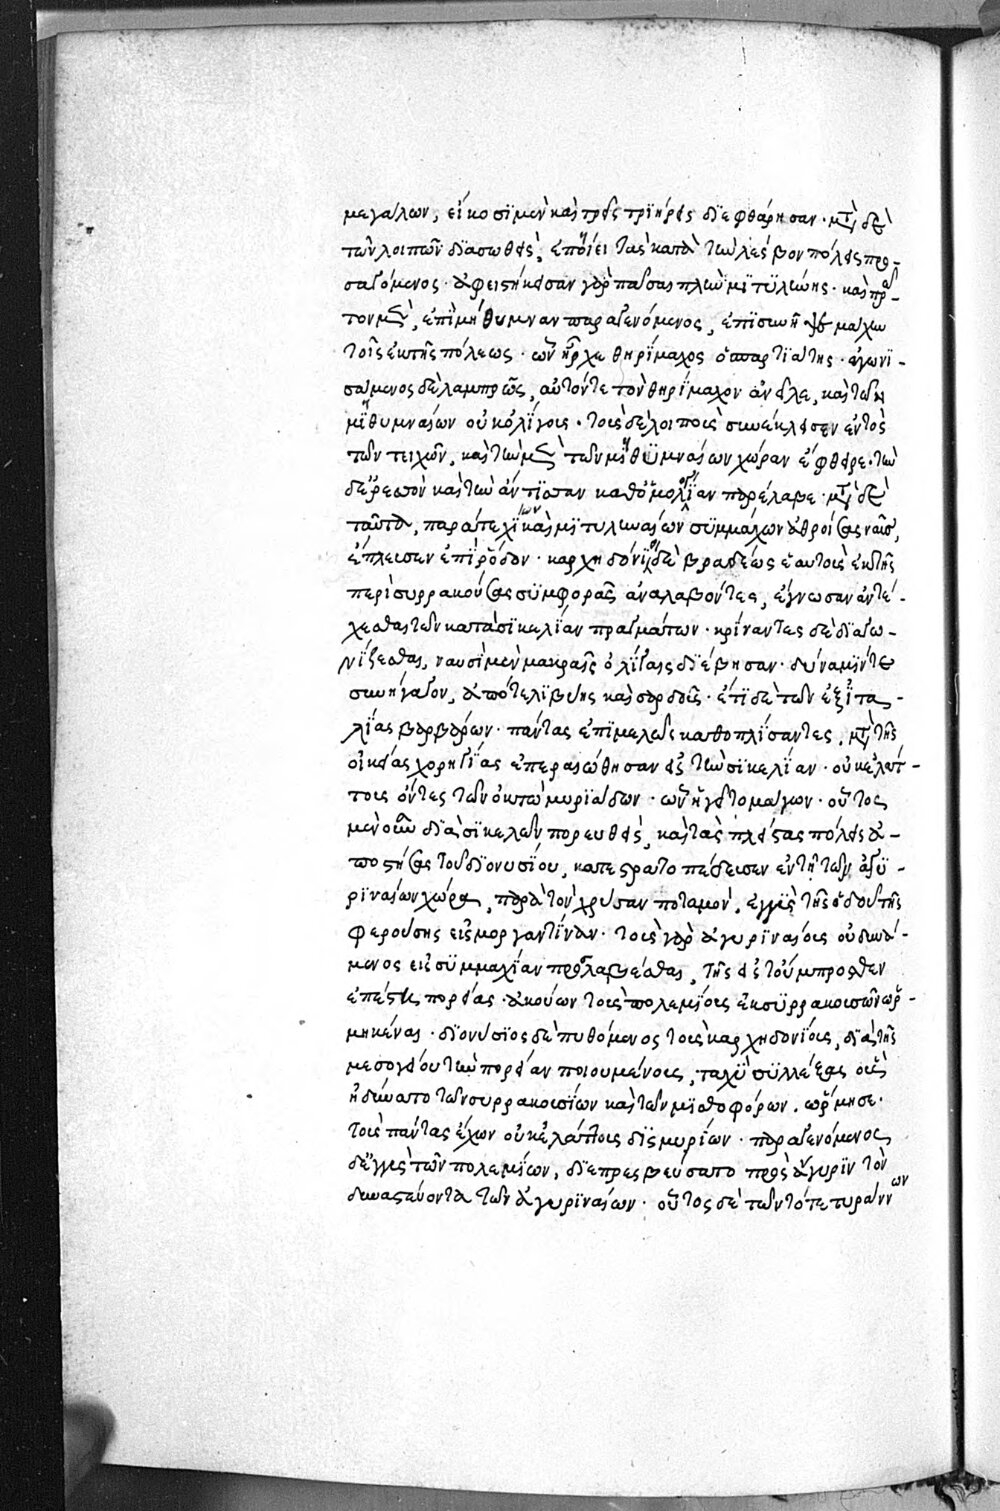 μεγάλων, εἴκοσι μὲν καὶ τρεῖς τριήρεις διεφθάρησαν· μετὰ δὲ
τῶν λοιπῶν διασωθεὶς, ἐποίει τὰς κατὰ τὴν λέσβον πόλεις προ-
σαγόμενος· ἀφειστήκεισαν γὰρ πᾶσαι πλὴν μιτυλήνης· καὶ πρῶ-
τον μὲν, ἐπὶ μήθυμναν παραγενόμενος, ἐπισυνῆψε μάχην
τοῖς ἐκ τῆς πόλεως· ὧν ἦρχε θηρίμαχος ὁ σπαρτιάτης· ἀγωνι-
σάμενος δὲ λαμπρῶς, αὐτόν τε τὸν θηρίμαχον ἀνεῖλε, καὶ τῶν
μιθυμναίων οὐκ ὀλίγους· τοὺς δὲ λοιποὺς συνέκλεισεν ἐντὸς
τῶν τειχῶν, καὶ τὴν μὲν τῶν μιθυμναίων χώραν ἔφθειρε· τὴν
δὲ ἔρεσσον καὶ τὴν ἄντισσαν καθ' ὁμολογίαν παρέλαβε· μετὰ δὲ
ταῦτα, παρά τε χίων καὶ μιτυληναίων συμμάχων ἀθροίσας ναῦς,
ἔπλευσεν ἐπὶ ῥόδον· καρχηδόνιοι δὲ βραδέως ἑαυτοὺς ἐκ τῆς
περὶ συρρακούσας συμφορᾶς ἀναλαβόντες, ἔγνωσαν ἀντέ-
χεσθαι τῶν κατὰ σικελίαν πραγμάτων· κρίναντες δὲ διαγω-
νίζεσθαι, ναυσὶ μὲν μακραῖς ὀλίγαις διέβησαν· δύναμιν δὲ
συνήγαγον, ἀπό τε λιβύης καὶ σαρδοῦς· ἔτι δὲ τῶν ἐξ ἰτα-
λίας βαρβάρων· πάντας ἐπιμελῶς καθοπλίσαντες, μετὰ τῆς
οἰκείας χορηγίας ἐπεραιώθησαν εἰς τὴν σικελίαν· οὐκ ἐλάτ-
τους ὄντες τῶν ὀκτὼ μυριάδων· ὧν ἡγεῖτο μάγων· οὗτος
μὲν οὖν διὰ σικελῶν πορευθεὶς, καὶ τὰς πλείστας πόλεις ἀ-
ποστήσας τοῦ διονυσίου, κατεστρατοπέδευσεν ἐν τῇ τῶν ἀγυ-
ριναίων χώρα, παρὰ τὸν χρύσαν ποταμὸν, ἐγγὺς τῆς ὁδοῦ τῆς
φερούσης εἰς μοργαντίναν· τοὺς γὰρ ἀγυριναίους οὐ δυνά-
μενος εἰς συμμαχίαν προσλαβέσθαι, τῆς εἰς τοὔμπροσθεν
ἐπέστη πορείας· ἀκούων τοὺς πολεμίους ἐκ συρρακουσῶν ὡρ-
μηκέναι· διονύσιος δὲ πυθόμενος τοὺς καρχηδονίους, διὰ τῆς
μεσογείου τὴν πορείαν ποιουμένους, ταχὺ συλλέξας οὓς
ἠδύνατο τῶν συρρακουσίων καὶ τῶν μισθοφόρων. ὥρμησε·
τοὺς πάντας ἔχων οὐκ ἐλάττους δισμυρίων· παραγενόμενος
δ' ἐγγὺς τῶν πολεμίων, διεπρεσβεύσατο πρὸς ἄγυριν τὸν
δυναστεύοντα τῶν ἀγυριναίων· οὗτος δὲ τῶν τότε τυράννων